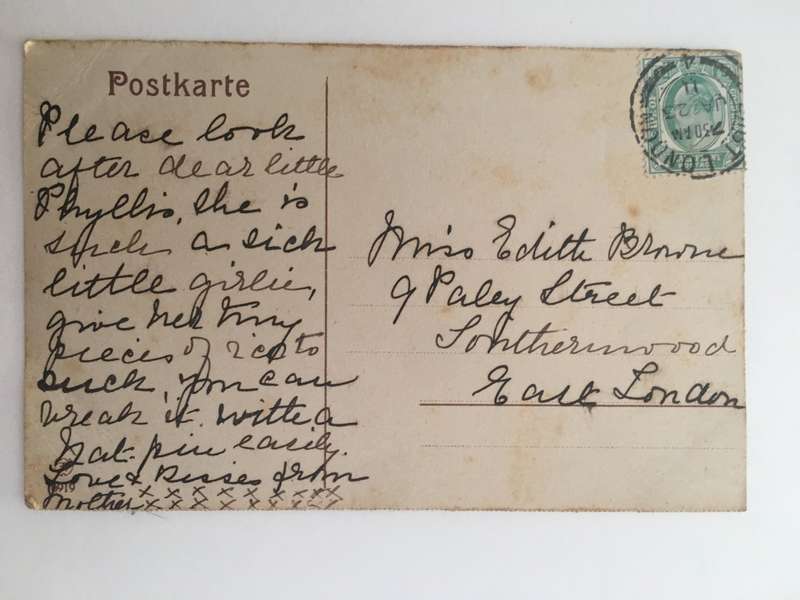 Postkarte
Please look
after dear little
Phyllis, she is
such a sick
little girlie,
give her tiny
pieces of ice to
suck, you can
break it with a
hat pin easily.
Love & Kisses from
Mother x x x x x x x x x
x x x x x x x x x
Miss Edith Browne
9 Paley Street
Southernwood
East London
EAST LONDON
7 50 AM
JA 23
11
4